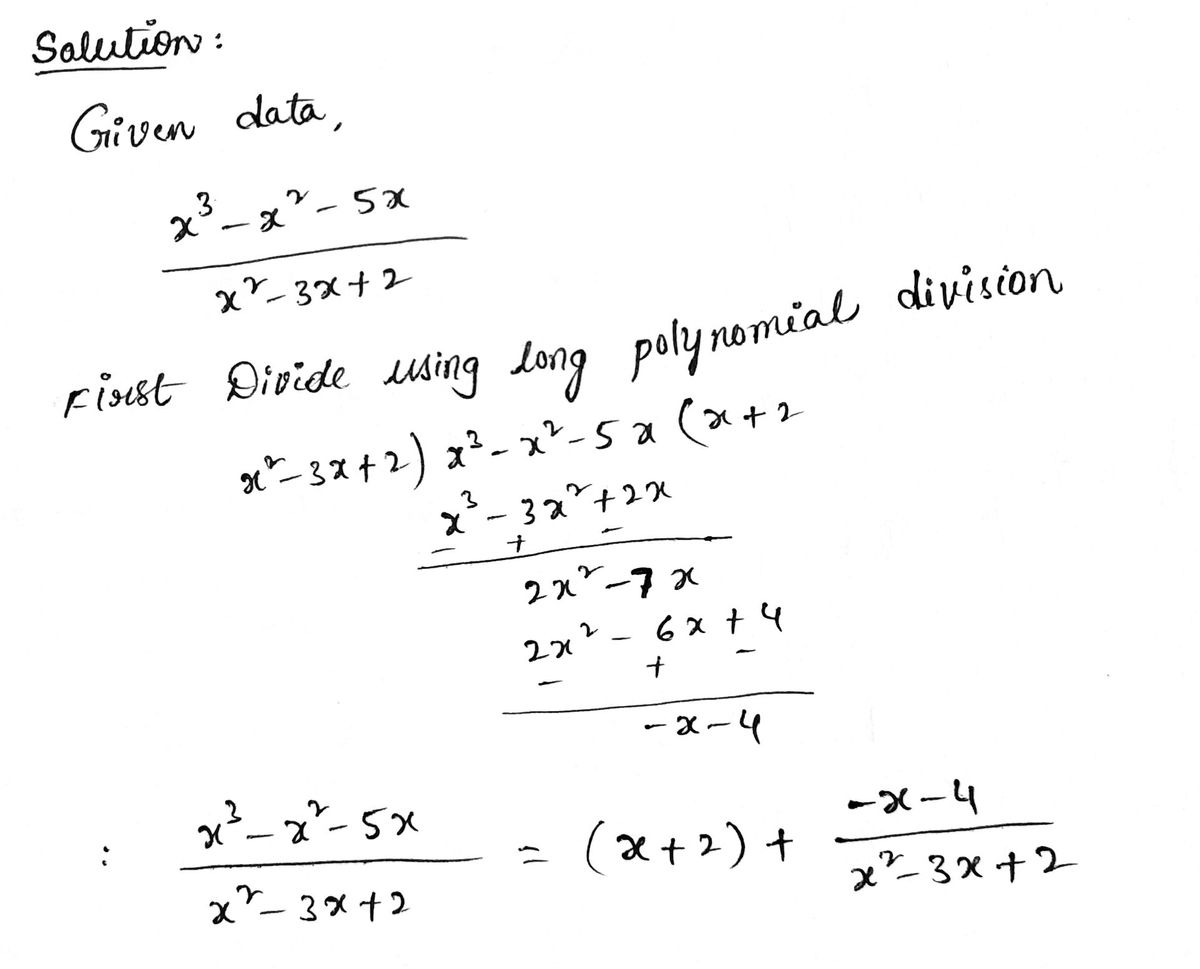 Solution:
Given data,
x³ - x² - 5x
x² - 3x + 2
First Divide using long polynomial division
x² - 3x + 2) x³ - x² - 5x (x + 2
x³ - 3x² + 2x
- + -
2x² - 7x
2x² - 6x + 4
- + -
-x - 4
: x³ - x² - 5x / x² - 3x + 2 = (x + 2) + -x - 4 / x² - 3x + 2